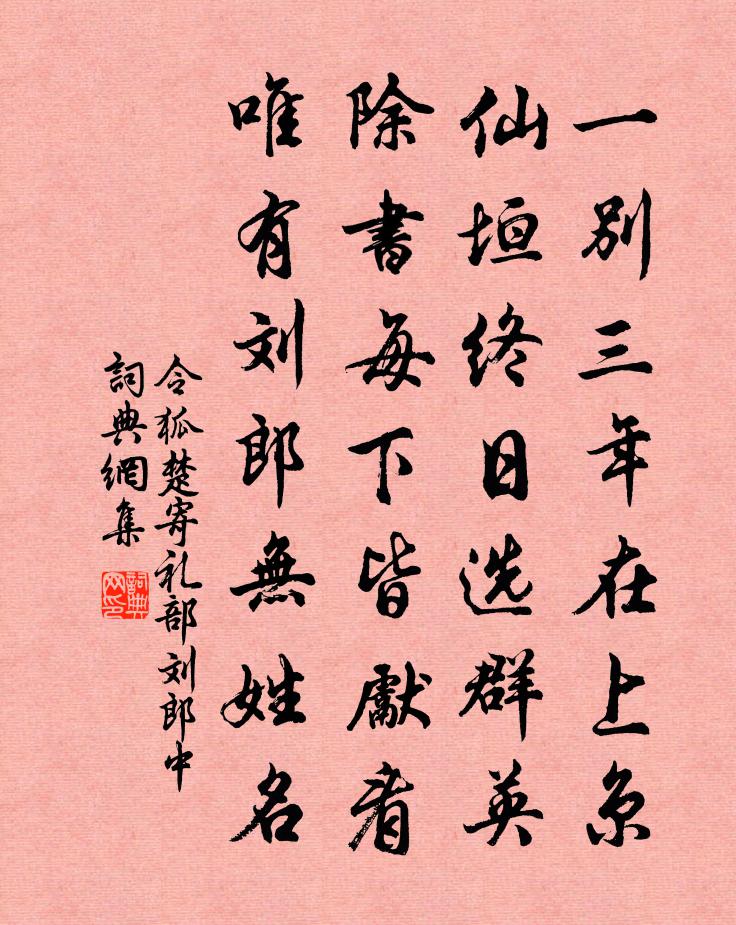 一别三年在上京
仙垣终日选群英
除書每下皆獻看
唯有刘郎無姓名
令狐楚寄礼部刘郎中
詞典網集
詞典
网印